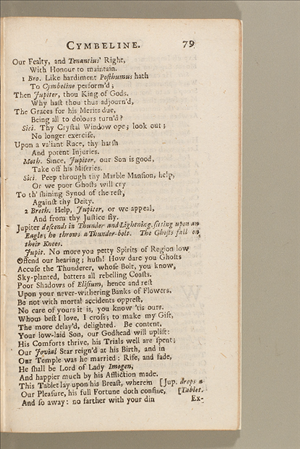 CYMBELINE. 79
Our Fealty, and Tenantius' Right,
With Honour to maintain.
1 Bro. Like hardiment Posthumus hath
To Cymbeline perform'd;
Then Jupiter, thou King of Gods,
Why hast thou thus adjourn'd,
The Graces for his Merits due,
Being all to dolours turn'd?
Sici. Thy Crystal Window ope; look out;
No longer exercise,
Upon a valiant Race, thy harsh
And potent Injuries.
Moth. Since, Jupiter, our Son is good,
Take off his Miseries.
Sici. Peep through thy Marble Mansion, help,
Or we poor Ghosts will cry
To th' shining Synod of the rest,
Against thy Deity.
2 Breth. Help, Jupiter, or we appeal,
And from thy Justice fly.
Jupiter descends in Thunder and Lightning, sitting upon an
Eagle; he throws a Thunder-bolt. The Ghosts fall on
their Knees.
Jupit. No more you petty Spirits of Region low
Offend our hearing; hush! How dare you Ghosts
Accuse the Thunderer, whose Bolt, you know,
Sky-planted, batters all rebelling Coasts.
Poor Shadows of Elisium, hence and rest
Upon your never-withering Banks of Flowers.
Be not with mortal accidents opprest,
No care of yours it is, you know 'tis ours.
Whom best I love, I cross; to make my Gift,
The more delay'd, delighted. Be content,
Your low-laid Son, our Godhead will uplift:
His Comforts thrive, his Trials well are spent;
Our Jovial Star reign'd at his Birth, and in
Our Temple was he married: Rise, and fade,
He shall be Lord of Lady Imogen,
And happier much by his Affliction made.
This Tablet lay upon his Breast, wherein [Jup. drops a
Our Pleasure, his full Fortune doth confine, [Tablet.
And so away: no farther with your din
Ex-